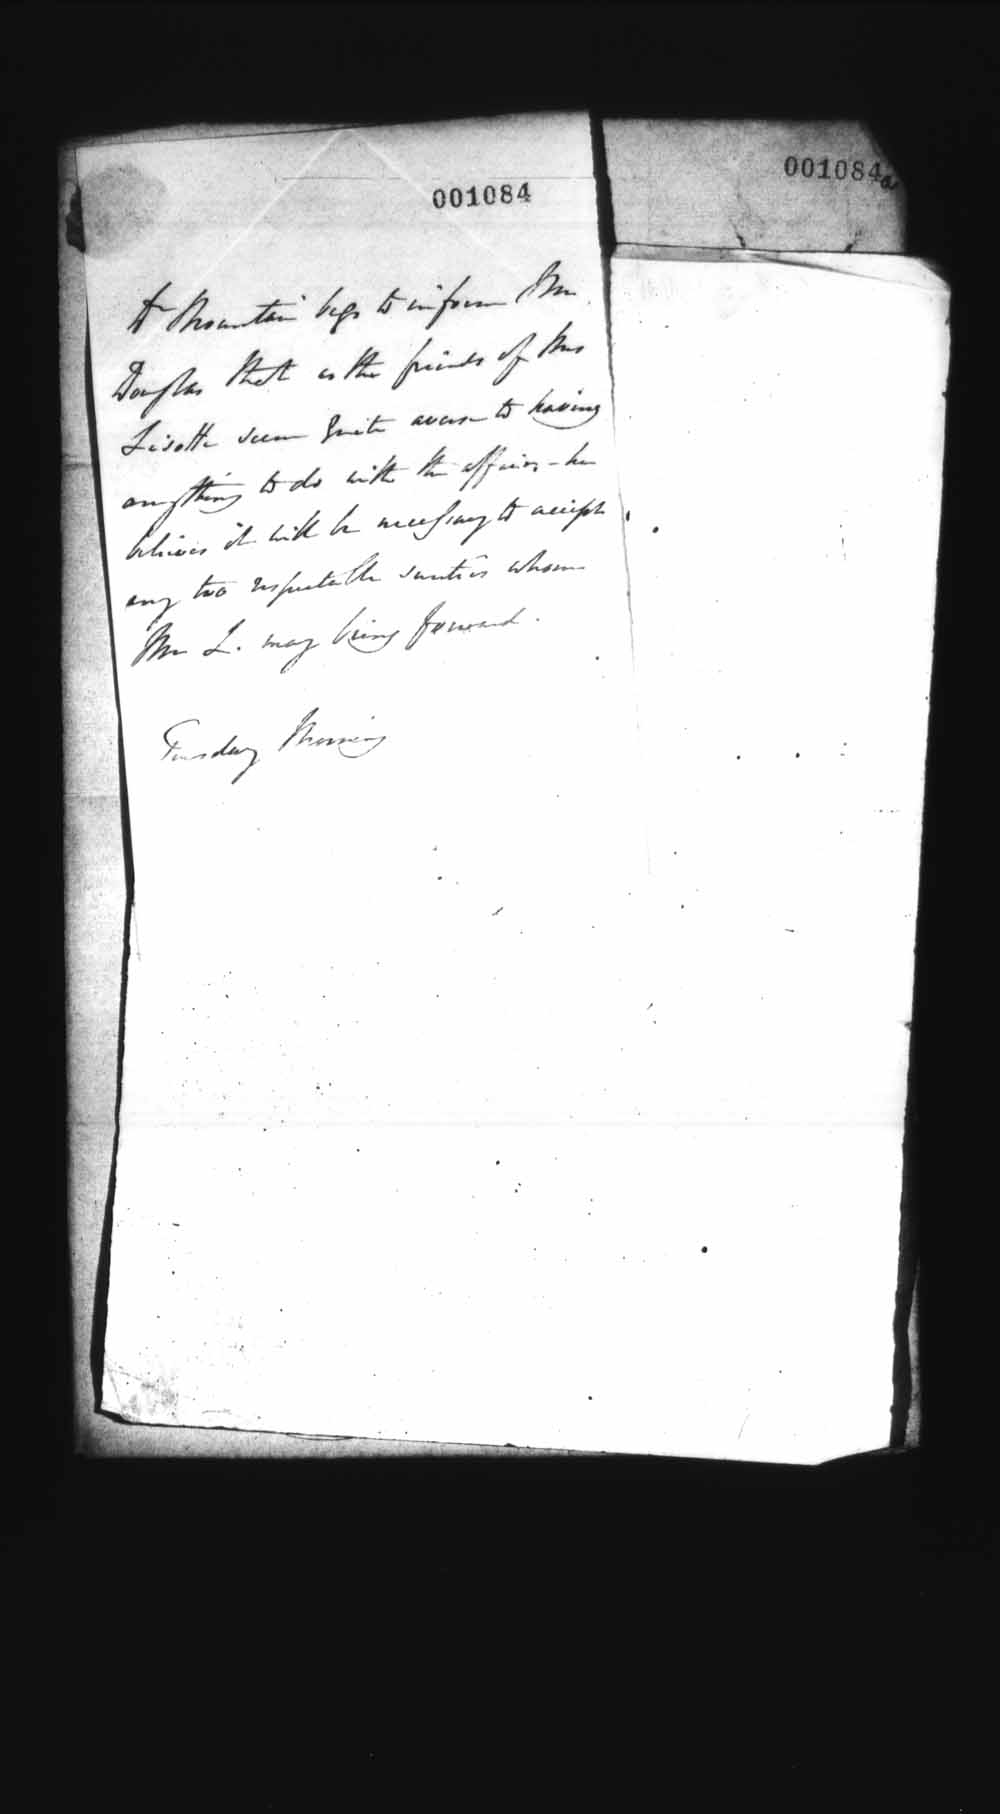 001084
001084a
Dr Mountain begs to inform Mr
Douglas that as the friends of Mrs
Lisotte seem quite averse to having
anything to do with the affairs - he
believes it will be necessary to accept
any two respectable sureties whom
Mr L. may bring forward.
Tuesday Morning